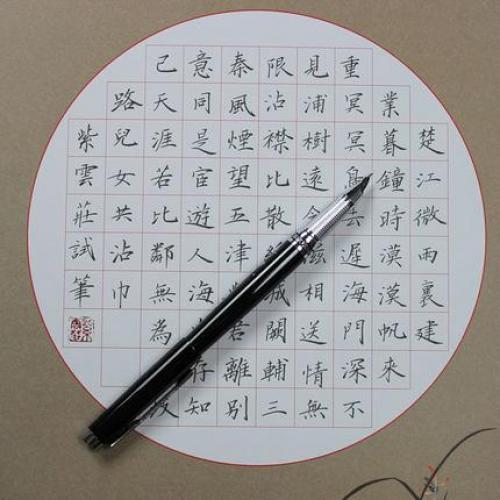 楚江微雨裏建
業暮鐘時漠漠帆來
重冥冥鳥去遲海門深不
見浦樹遠含滋相送情無
限沾襟比散絲城闕輔三
秦風煙望五津君離別
意同是宦遊人海存知
己天涯若比鄰無為
路兒女共沾巾
紫雲莊試筆